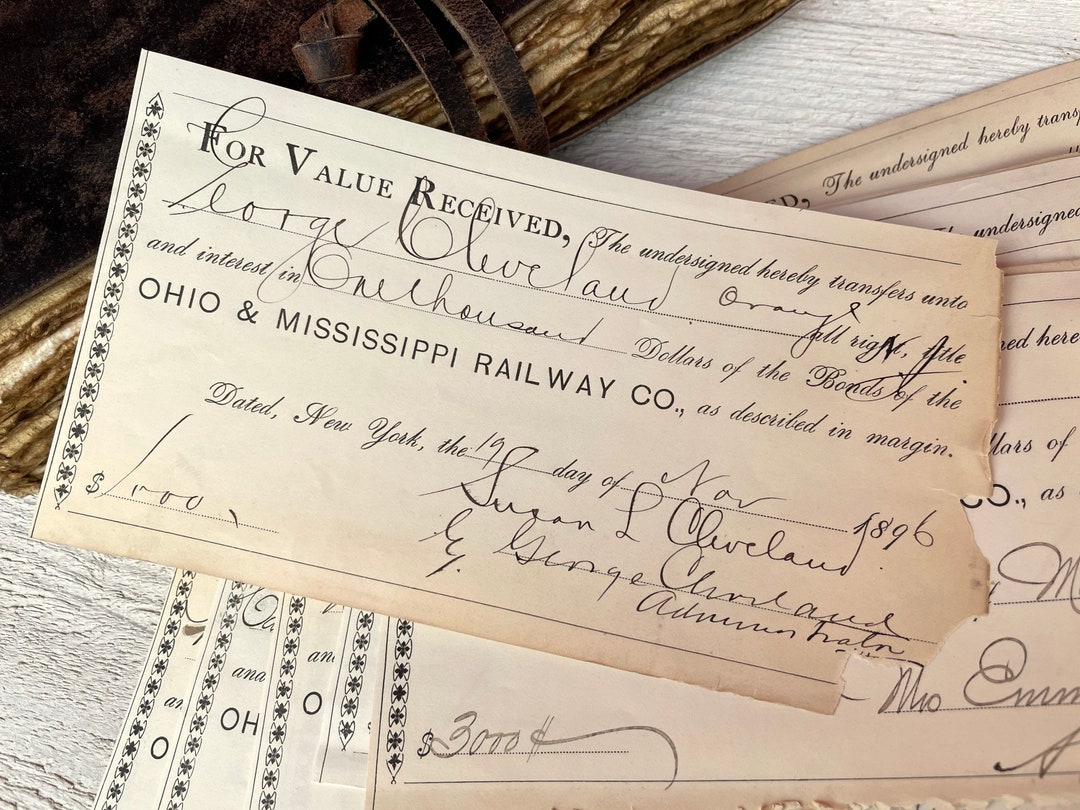 FOR VALUE RECEIVED, The undersigned hereby transfers unto
George Cleveland Orange N.J.
all right, title
and interest in One thousand Dollars of the Bonds of the
OHIO & MISSISSIPPI RAILWAY CO., as described in margin.
Dated, New York, the 19 day of Nov 1896
Susan L Cleveland
$1,000
By George Cleveland
Administrator
ED, The undersigned hereby transf
undersigned
ed here
llars of
CO., as
and
OH
and
O
an
O
Mrs Emm
$3000